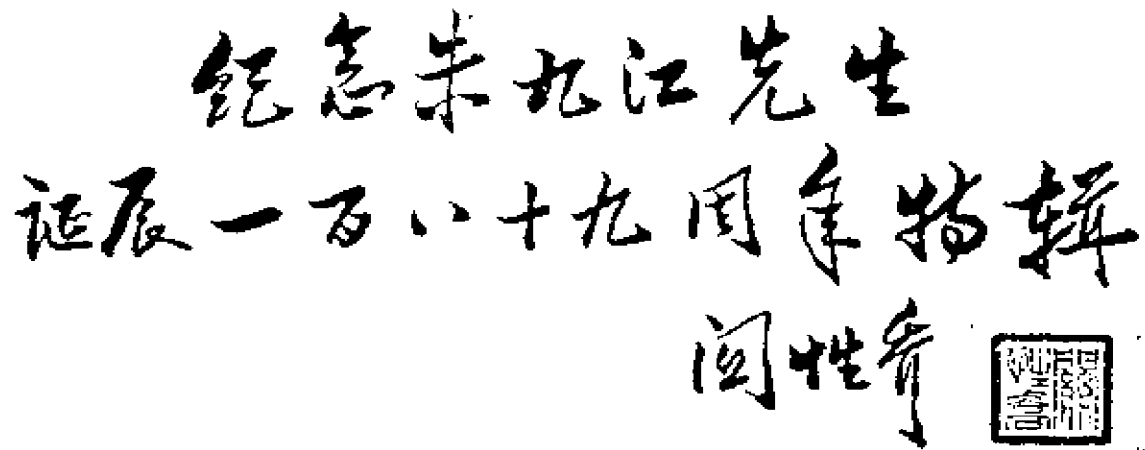 纪念朱九江先生
诞辰一百八十九周年特辑